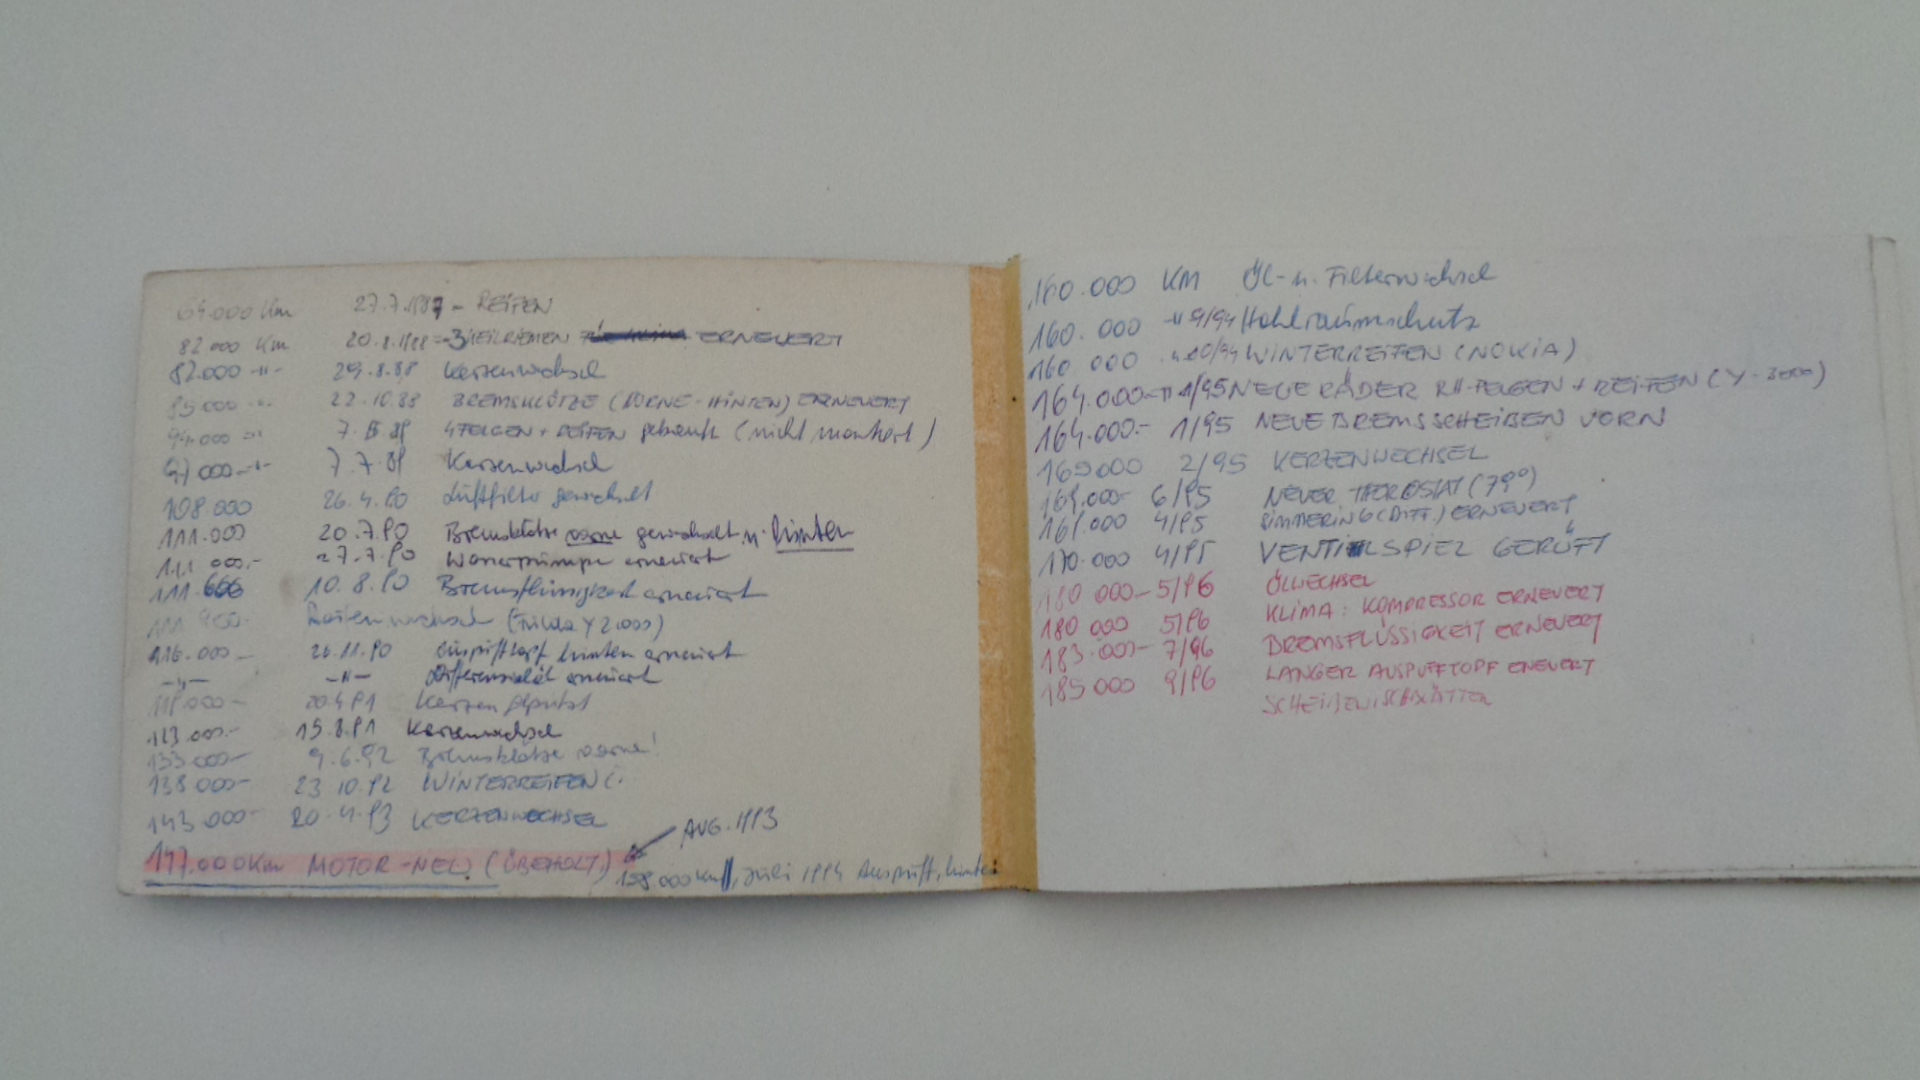 64.000 Km 27.7.1987 - REIFEN
82.000 Km 20.8.1988 - 3 KEILRIEMEN ERNEUERT
82.000 -"- 29.8.88 Kerzenwechsel
85.000 -"- 22.10.88 BREMSKLÖTZE (VORNE-HINTEN) ERNEUERT
94.000 -"- 7. 89 4 FELGEN + REIFEN gebraucht (nicht montiert)
97000 -"- 7.7.89 Kerzenwechsel
108.000 26.4.90 Luftfilter gewechselt
111.000 20.7.90 Bremsklötze vorne gewechselt u. hinten
111 000.- 27.7.90 Wasserpumpe erneuert
111.666 10.8.90 Bremsflüssigkeit erneuert
111 900.- Reifenwechsel (Fulda Y 2000)
116.000 - 26.11.90 Auspufftopf hinten erneuert
-"- -"- Differenzial erneuert
118.000- 20.4.91 Kerzen geputzt
123.000.- 15.8.91 Kerzenwechsel
133.000- 9.6.92 Bremsklötze vorne!
138.000- 23 10.92 WINTERREIFEN
143.000- 20.4.93 KERZENWECHSEL
AUG. 1993
147.000Km MOTOR-NEU (ÜBERHOLT.)
158 000 Km, Juli 1994 Auspuff, hinten
160.000 KM Öl- u. Filterwechsel
160.000 -"- 9/94 Hohlraumschutz
160 000 -"- 10/94 WINTERREIFEN (NOKIA)
164.000-"- 1/95 NEUE RÄDER RH-FELGEN + REIFEN (Y-3000)
164.000.- 1/95 NEUE BREMSSCHEIBEN VORN
165000 2/95 KERZENWECHSEL
169.000- 6/95 NEUER THEROSTAT (79°)
169.000 4/95 SIMMERING (DIFF.) ERNEUERT
170.000 4/95 VENTILSPIEL GERÜFT
180 000- 5/96 ÖLWECHSEL
180 000 5/96 KLIMA: KOMPRESSOR ERNEUERT
183.000- 7/96 BREMSFLÜSSIGKEIT ERNEUERT
185000 9/96 LANGER AUSPUFFTOPF ENEUERT
SCHEIBENWISCHBLÄTTER